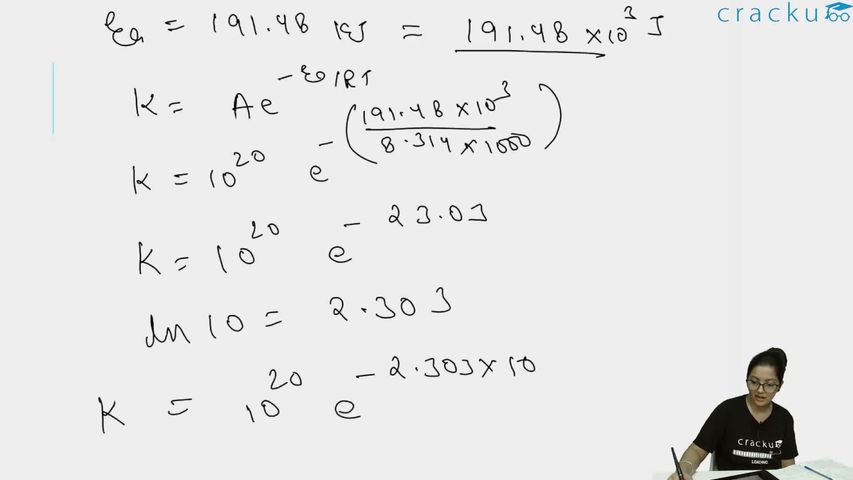 cracku
Ea = 191.48 KJ = 191.48 ×10³ J
K = Ae^-Ea/RT
K = 10^20 e^-(191.48×10³ / 8.314×1000)
K = 10^20 e^-23.03
ln 10 = 2.303
K = 10^20 e^-2.303×10
cracku
LEADING